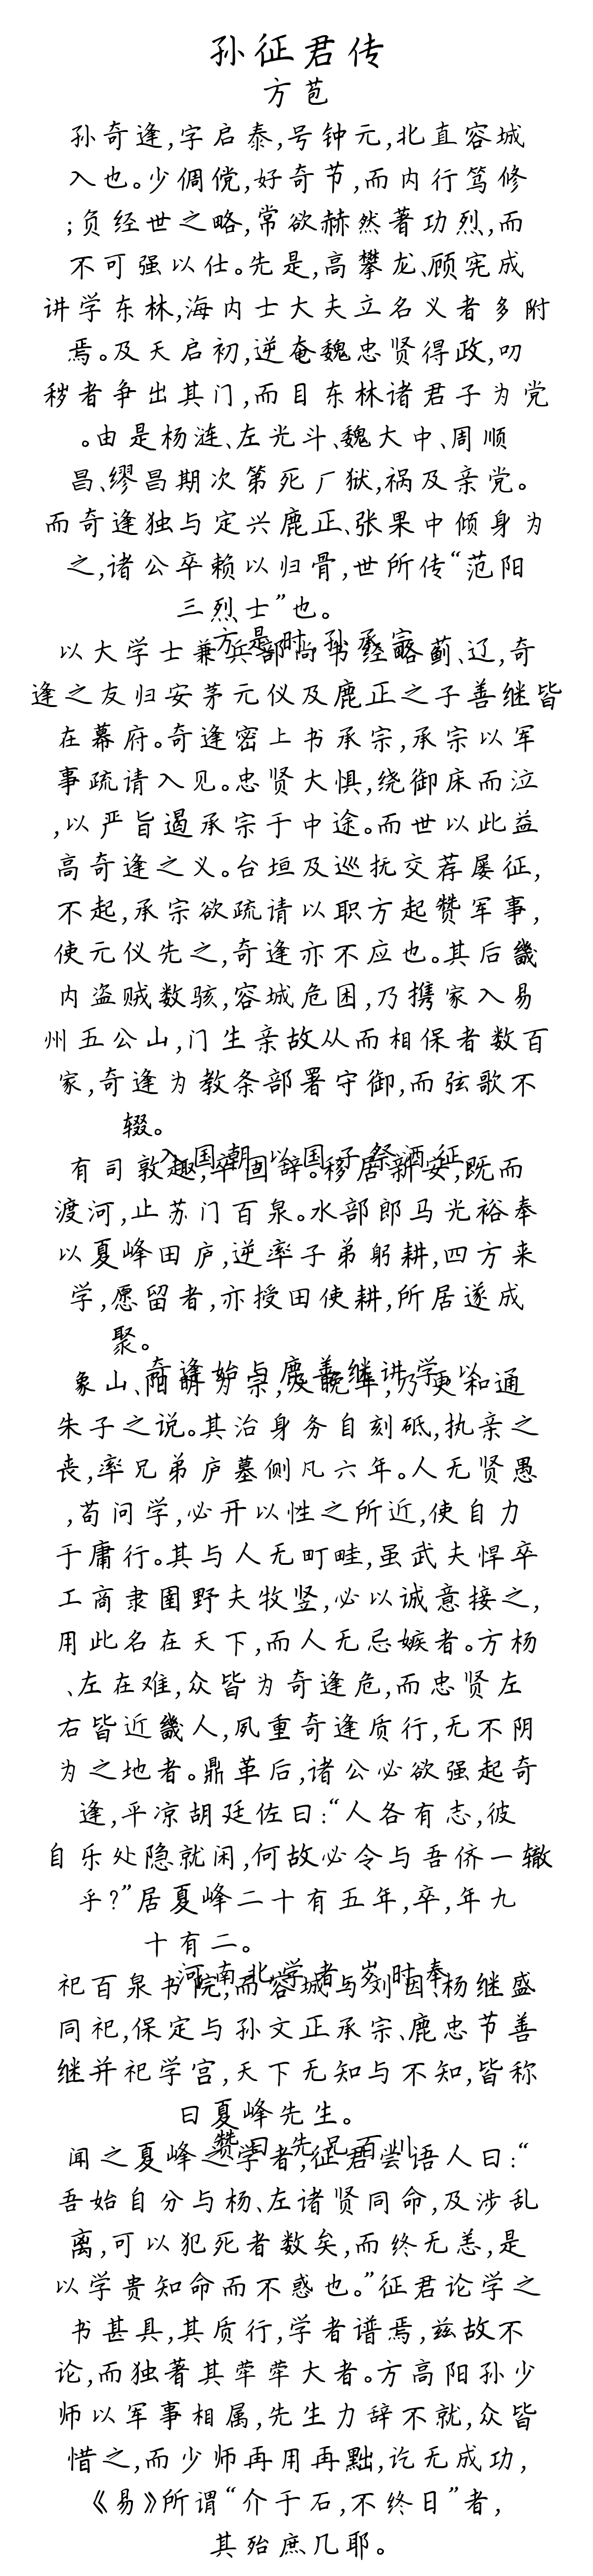 孙征君传
方苞
孙奇逢,字启泰,号钟元,北直容城
入也。少倜傥,好奇节,而内行笃修
;负经世之略,常欲赫然著功烈,而
不可强以仕。先是,高攀龙、顾宪成
讲学东林,海内士大夫立名义者多附
焉。及天启初,逆奄魏忠贤得政,叨
秽者争出其门,而目东林诸君子为党
。由是杨涟、左光斗、魏大中、周顺
昌、缪昌期次第死厂狱,祸及亲党。
而奇逢独与定兴鹿正、张果中倾身为
之,诸公卒赖以归骨,世所传“范阳
三烈士”也。
方是时,孙承宗
以大学士兼兵部尚书经略蓟、辽,奇
逢之友归安茅元仪及鹿正之子善继皆
在幕府。奇逢密上书承宗,承宗以军
事疏请入见。忠贤大惧,绕御床而泣
,以严旨遏承宗于中途。而世以此益
高奇逢之义。台垣及巡抚交荐屡征,
不起,承宗欲疏请以职方起赞军事,
使元仪先之,奇逢亦不应也。其后畿
内盗贼数骇,容城危困,乃携家入易
州五公山,门生亲故从而相保者数百
家,奇逢为教条部署守御,而弦歌不
辍。
入国朝,以国子祭酒征
有司敦趣,卒固辞。移居新安,既而
渡河,止苏门百泉。水部郎马光裕奉
以夏峰田庐,逆率子弟躬耕,四方来
学,愿留者,亦授田使耕,所居遂成
聚。
奇逢始与鹿善继讲学,以
象山、阳明为宗,及晚年,乃更和通
朱子之说。其治身务自刻砥,执亲之
丧,率兄弟庐墓侧凡六年。人无贤愚
,苟问学,必开以性之所近,使自力
于庸行。其与人无町畦,虽武夫悍卒
工商隶圉野夫牧竖,必以诚意接之,
用此名在天下,而人无忌嫉者。方杨
、左在难,众皆为奇逢危,而忠贤左
右皆近畿人,夙重奇逢质行,无不阴
为之地者。鼎革后,诸公必欲强起奇
逢,平凉胡廷佐曰:“人各有志,彼
自乐处隐就闲,何故必令与吾侪一辙
乎?”居夏峰二十有五年,卒,年九
十有二。
河南北学者岁时奉
祀百泉书院,而容城与刘因、杨继盛
同祀,保定与孙文正承宗、鹿忠节善
继并祀学宫,天下无知与不知,皆称
曰夏峰先生。
赞曰:先兄百川
闻之夏峰之学者,征君尝语人曰:“
吾始自分与杨、左诸贤同命,及涉乱
离,可以犯死者数矣,而终无恙,是
以学贵知命而不惑也。”征君论学之
书甚具,其质行,学者谱焉,兹故不
论,而独著其荦荦大者。方高阳孙少
师以军事相属,先生力辞不就,众皆
惜之,而少师再用再黜,讫无成功,
《易》所谓“介于石,不终日”者,
其殆庶几耶。